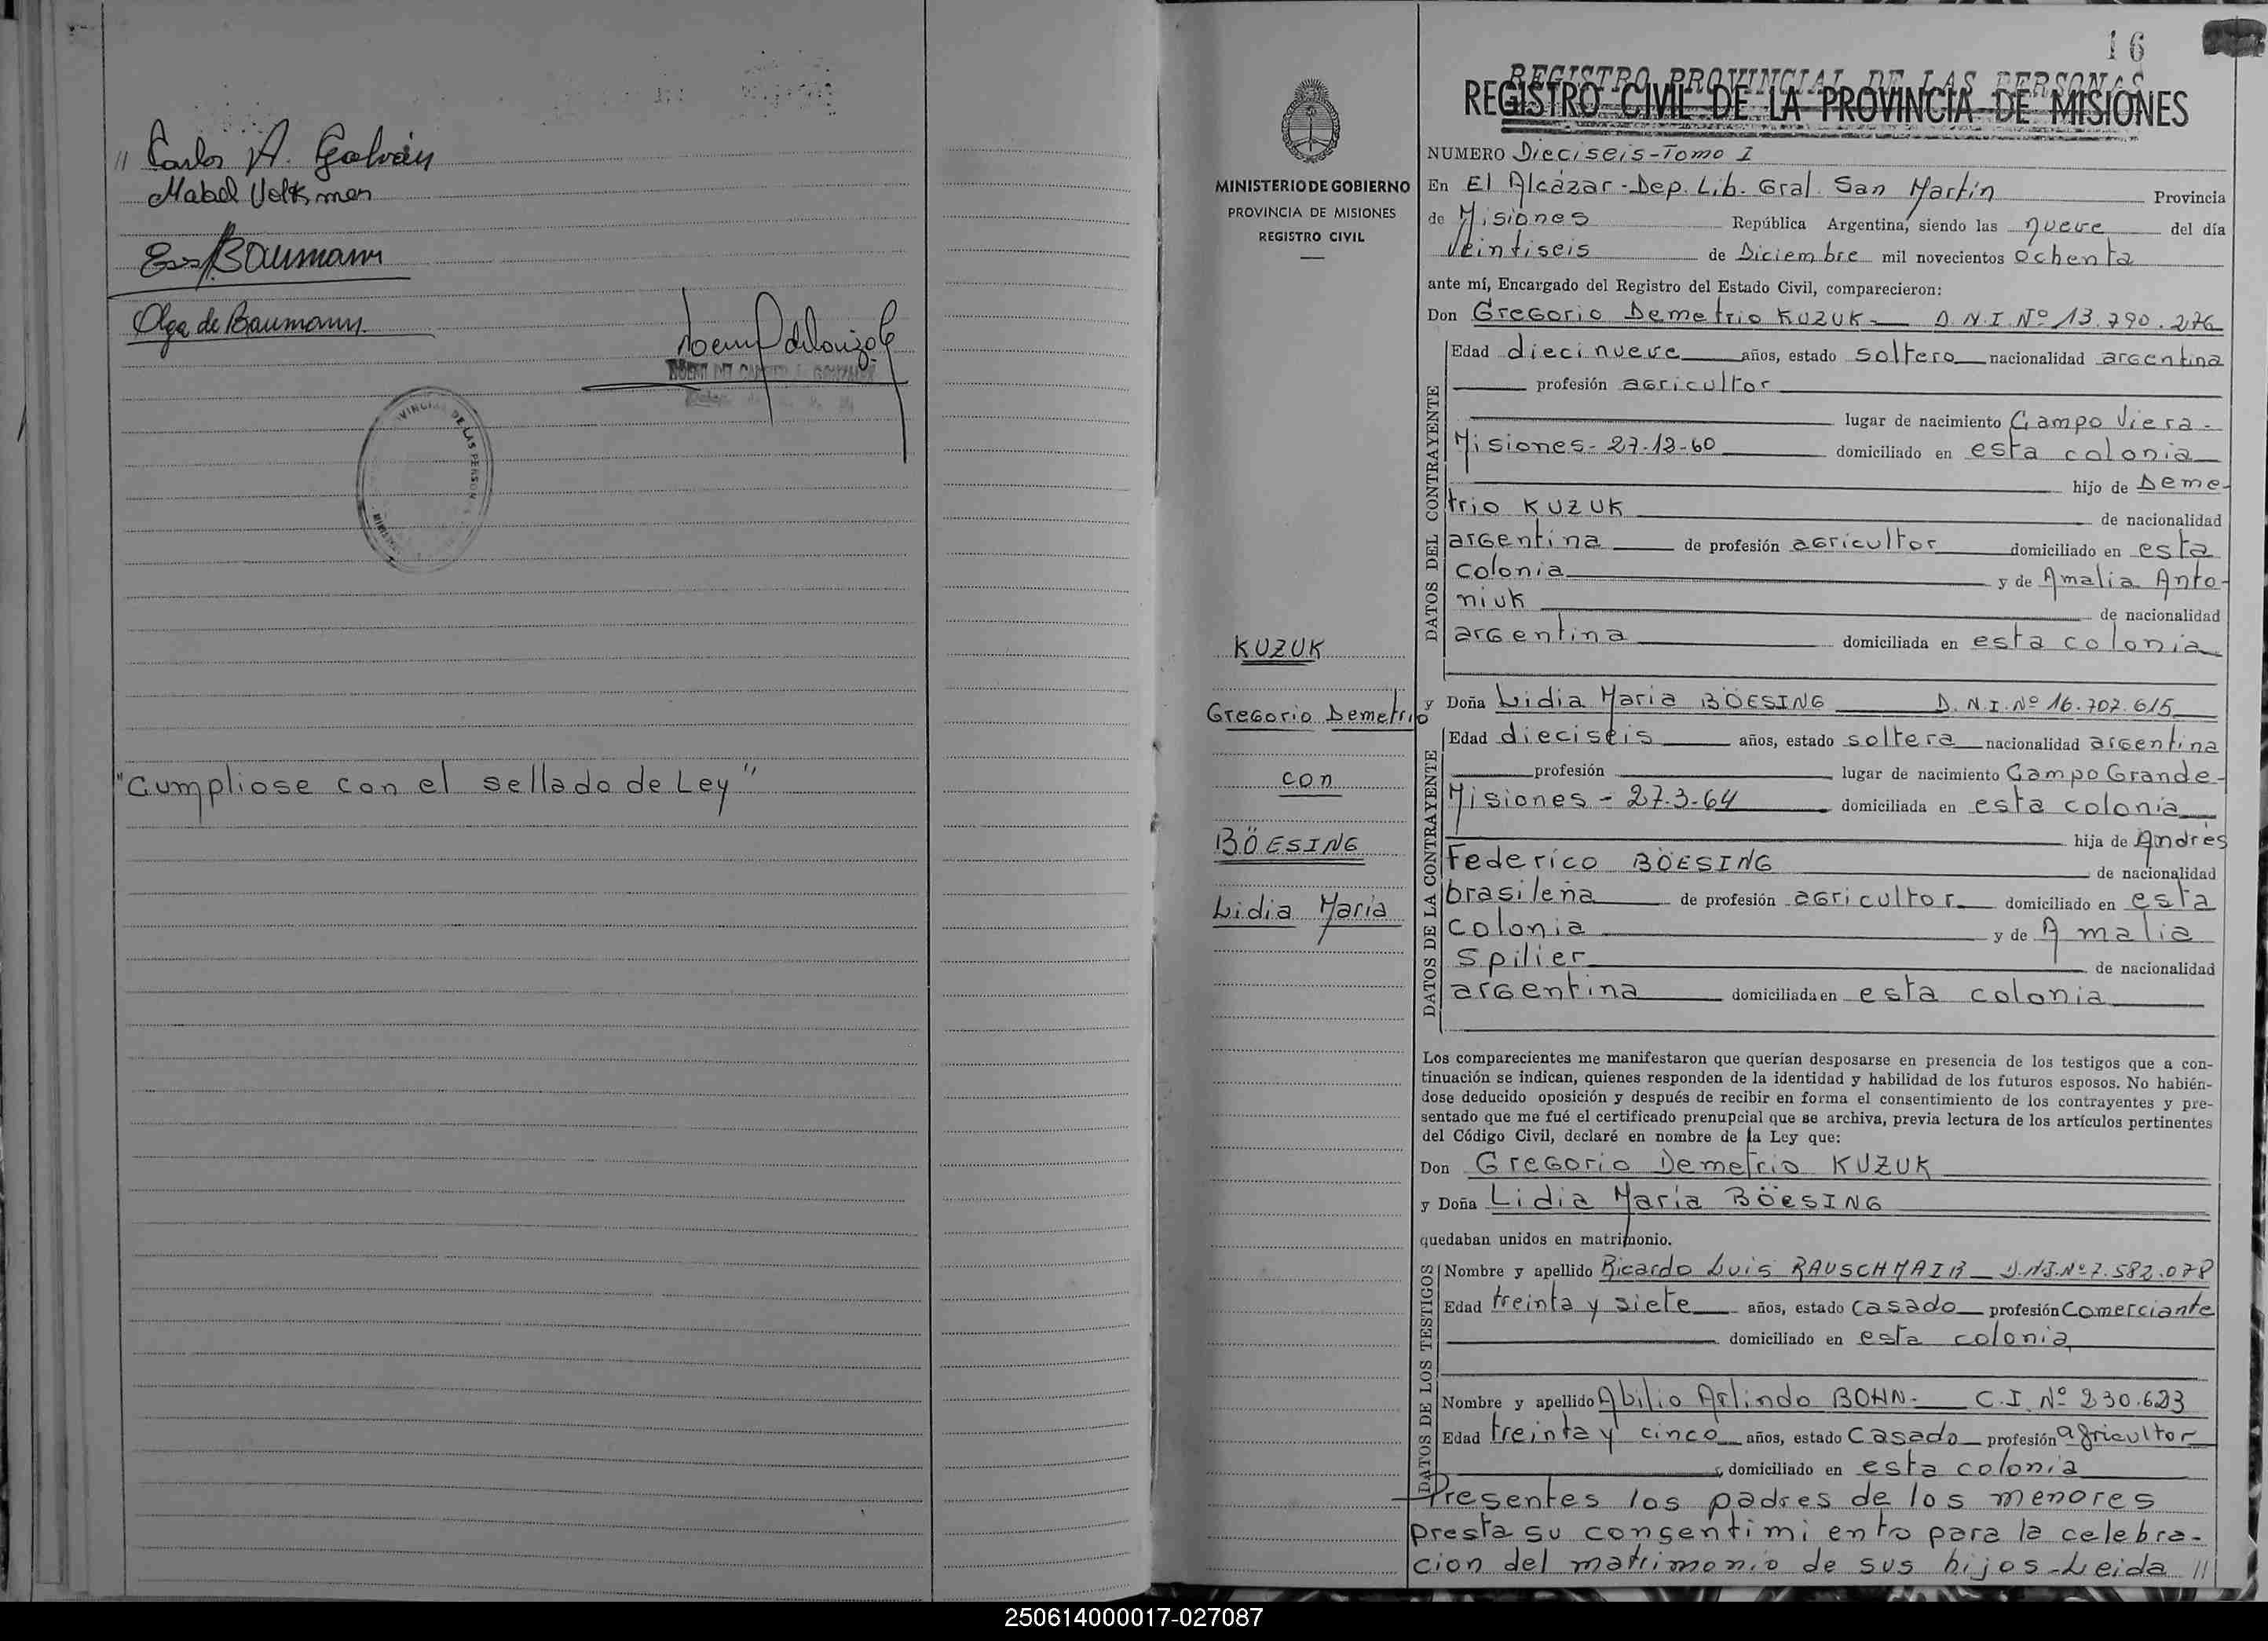 // Carlos A. Galván
Mabel Volkmer
Baumann
Olga de Baumann
"Cumpliose con el sellado de Ley"
16
REGISTRO PROVINCIAL DE LAS PERSONAS
REGISTRO CIVIL DE LA PROVINCIA DE MISIONES
MINISTERIO DE GOBIERNO
PROVINCIA DE MISIONES
REGISTRO CIVIL
KUZUK
Gregorio Demetrio
con
BÖESING
Lidia María
NUMERO Dieciseis-Tomo I
En El Alcázar-Dep. Lib. Gral. San Martín Provincia
de Misiones República Argentina, siendo las nueve del día
Veintiseis de Diciembre mil novecientos ochenta
ante mí, Encargado del Registro del Estado Civil, comparecieron:
Don Gregorio Demetrio KUZUK- D.N.I.Nº 13.790.276
DATOS DEL CONTRAYENTE
Edad diecinueve años, estado soltero nacionalidad argentina
profesión agricultor
lugar de nacimiento Campo Viera-
Misiones-27-12-60 domiciliado en esta colonia
hijo de Deme-
trio KUZUK de nacionalidad
argentina de profesión agricultor domiciliado en esta
colonia y de Amalia Anto-
niuk de nacionalidad
argentina domiciliada en esta colonia
y Doña Lidia María BÖESING D.N.I.Nº 16.707.615
DATOS DE LA CONTRAYENTE
Edad dieciseis años, estado soltera nacionalidad argentina
profesión lugar de nacimiento Campo Grande-
Misiones-27-3-64 domiciliada en esta colonia
hija de Andrés
Federico BÖESING de nacionalidad
brasileña de profesión agricultor domiciliado en esta
colonia y de Amalia
Spilier de nacionalidad
argentina domiciliada en esta colonia
Los comparecientes me manifestaron que querían desposarse en presencia de los testigos que a con-
tinuación se indican, quienes responden de la identidad y habilidad de los futuros esposos. No habién-
dose deducido oposición y después de recibir en forma el consentimiento de los contrayentes y pre-
sentado que me fué el certificado prenupcial que se archiva, previa lectura de los artículos pertinentes
del Código Civil, declaré en nombre de la Ley que:
Don Gregorio Demetrio KUZUK
y Doña Lidia María BÖESING
quedaban unidos en matrimonio.
DATOS DE LOS TESTIGOS
Nombre y apellido Ricardo Luis RAUSCHMAIR D.N.I.Nº 7.582.078
Edad treinta y siete años, estado casado profesión comerciante
domiciliado en esta colonia
Nombre y apellido Abilio Arlindo BOHN- C.I.Nº 230.623
Edad treinta y cinco años, estado casado profesión agricultor
domiciliado en esta colonia
Presentes los padres de los menores
presta su consentimiento para la celebra-
cion del matrimonio de sus hijos-Leida //
250614000017-027087